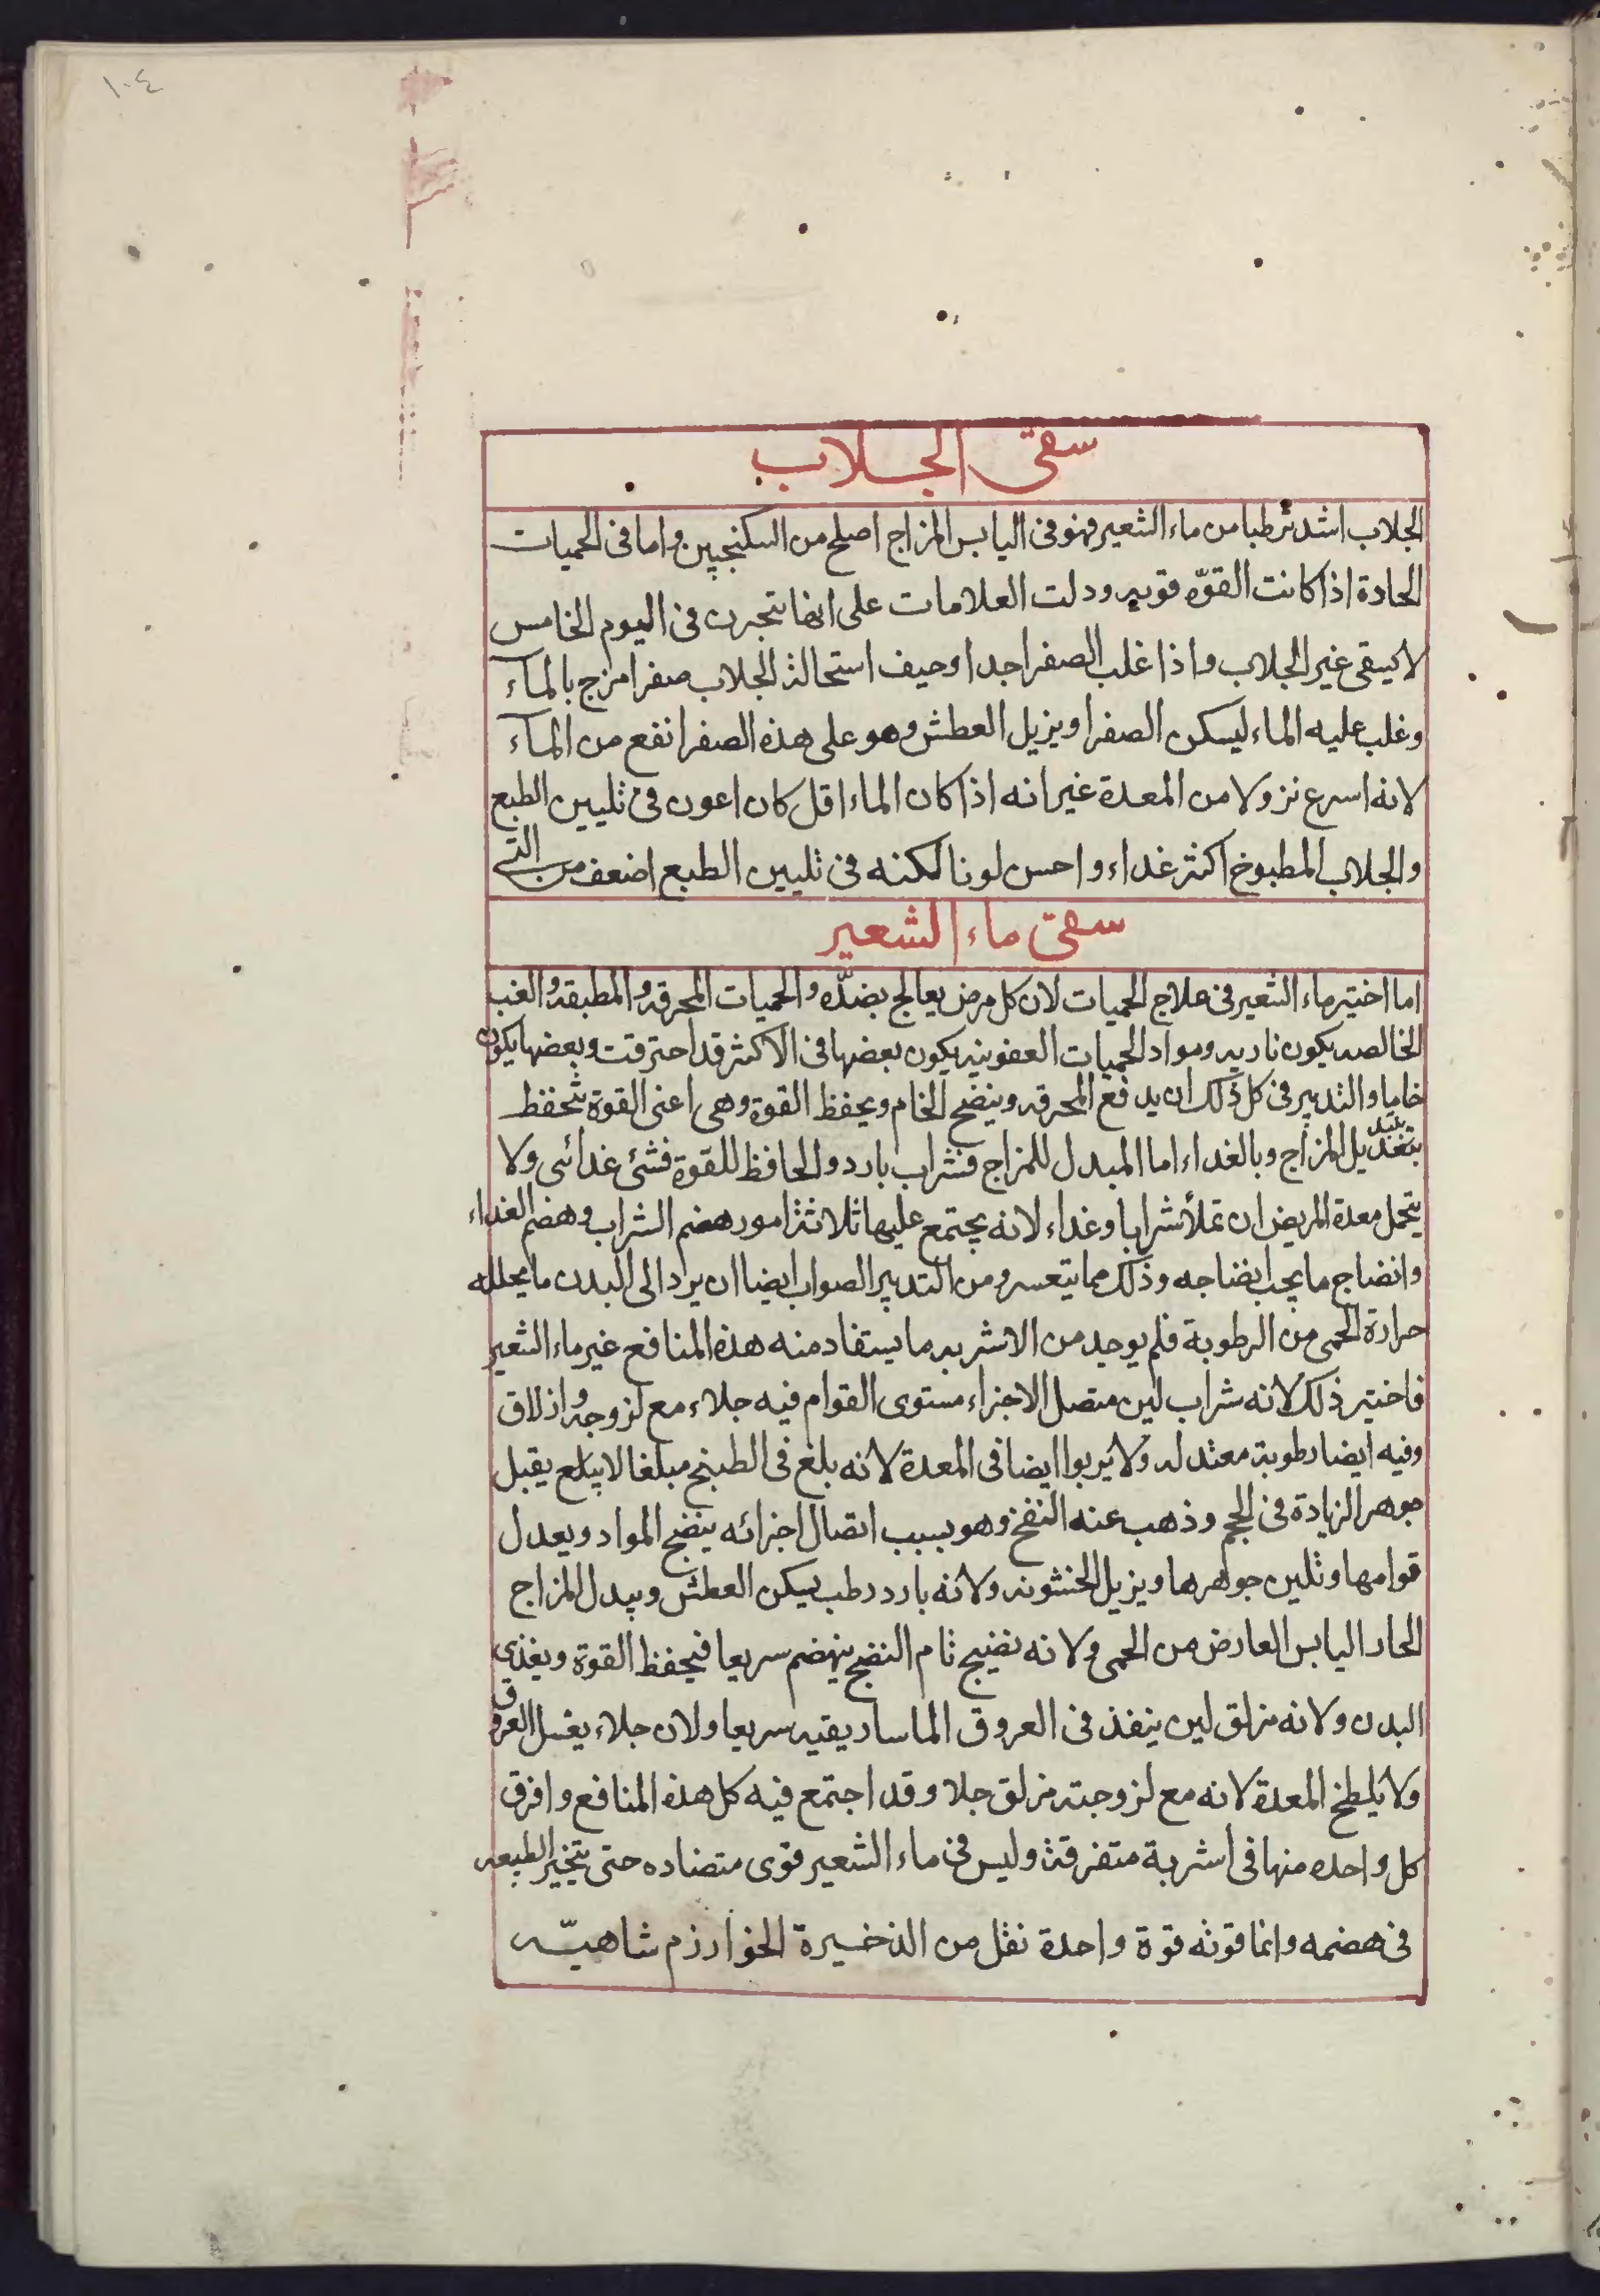 ١٠٤
سقى الجلاب
الجلاب اشد ترطبا من ماء الشعير فهو فى اليابس المزاج اصلح من السكنجبين واما فى الحميات
الحادة اذا كانت القوّه قويه ودلت العلامات على انها تتجرن فى اليوم الخامس
لا يسقى غير الجلاب واذا غلب الصفرا جدا وحيف استحالة الجلاب صفرا مزج بالمآء
وغلب عليه الماء ليسكن الصفرا ويزيل العطش وهو على هذه الصفرا نفع من المآء
لانه اسرع نزولا من المعدة غير انه اذا كان الماء اقل كان اعون فى تليين الطبع
والجلاب المطبوخ اكثر غداء واحسن لونا لكنه فى تليين الطبع اضعف من التى
سقى ماء الشعير
اما اختير ماء الشعير فى علاج الحميات لان كل مرض يعالج بضدّه والحميات المحرقه والمطبقه والغب
الخالصه يكون ناريه ومواد الحميات العفونيه يكون بعضها فى الاكثر قد احترقت وبعضها يكون
خاما والتدبير فى كل ذلك ان يدفع المحرقه وينضج الخام ويحفظ القوة وهى اعنى القوة تتحفظ
المزاج وبالغداء اما المبدل للمزاج فشراب بارد والحافظ للقوة فشئ غدائى ولا
يتحمل معدة المريض ان تملأ شرابا وغداء لانه يجتمع عليها ثلاثة امور هضم الشراب وهضم الغداء
وانضاج ما يجب انضاجه وذلك مما يتعسر ومن التدبير الصواب ايضا ان يراد الى البدن ما يحلله
حرارة الحمى من الرطوبة فلم يوجد من الاشربه ما يستفاد منه هذه المنافع غير ماء الشعير
فاختير ذلك لانه شراب لين متصل الاجزاء مستوى القوام فيه جلاء مع لزوجه وازلاق
وفيه ايضا رطوبة معتدله ولا يربوا ايضا فى المعدة لانه بلغ فى الطبخ مبلغا لا يبلع يقبل
جوهر الزيادة فى الحجم وذهب عنه النفخ وهو بسبب اتصال اجزائه ينضج المواد ويعدل
قوامها وتلين جواهرها ويزيل الخشونه ولانه بارد رطب يسكن العطش ويبدل المزاج
الحار اليابس العارض من الحمى ولانه نضيج تام النضج ينهضم سريعا فيحفظ القوة ويغذى
البدن ولانه مزلق لين ينفذ فى العروق الماساريقيه سريعا ولان جلاء يغسل العروق
ولا يلطخ المعدة لانه مع لزوجته مزلق جلا وقد اجتمع فيه كل هذه المنافع وافرق
كل واحده منها فى اشربة متفرقة وليس فى ماء الشعير قوى متضاده حتى يتخير الطبيعه
فى هضمه وانما قوته قوة واحدة نقل من الذخيرة الخوارزم شاهيّه